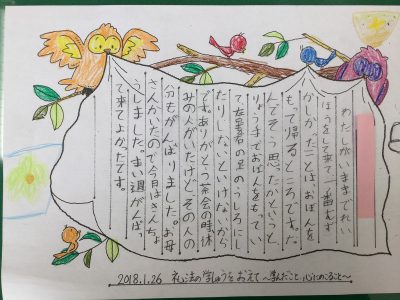 わたしがいままでれい
ほうをして来て一番むず
かしかったことはおぼんを
もって帰るところです。な
んでそう思ったかというと、
りょう手でおぼんをもってい
の足のうしろにし
たりしないといけないから
です。ありがとうお茶会の時休
みの人がいたけど、その人の
分もがんばりました。お母
さんがいたので今日はきんちょ
うしました。まい週がんばっ
て来てよかったです。
2018.1.26 礼法の学しゅうをおえて 〜学んだこと 心にのこること〜